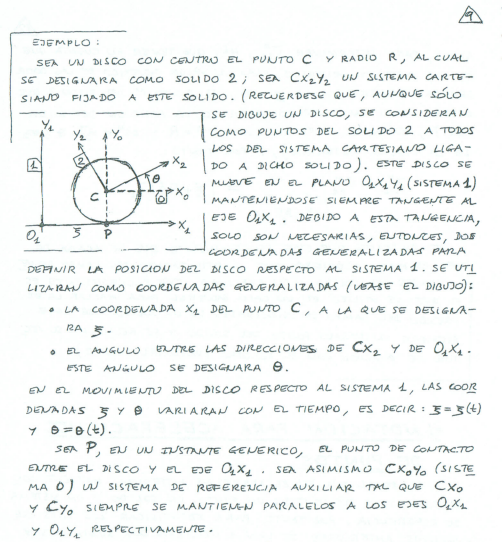 9
EJEMPLO:
SEA UN DISCO CON CENTRO EL PUNTO C Y RADIO R, AL CUAL
SE DESIGNARA COMO SOLIDO 2; SEA CX₂Y₂ UN SISTEMA CARTE-
SIANO FIJADO A ESTE SOLIDO. (RECUERDESE QUE, AUNQUE SÓLO
SE DIBUJE UN DISCO, SE CONSIDERAN
COMO PUNTOS DEL SOLIDO 2 A TODOS
LOS DEL SISTEMA CARTESIANO LIGA-
DO A DICHO SOLIDO). ESTE DISCO SE
MUEVE EN EL PLANO O₁X₁Y₁ (SISTEMA 1)
MANTENIENDOSE SIEMPRE TANGENTE AL
EJE O₁X₁. DEBIDO A ESTA TANGENCIA,
SOLO SON NECESARIAS, ENTONCES, DOS
COORDENADAS GENERALIZADAS PARA
Y₁
Y₂
Y₀
1
2
X₂
θ
C
X₀
0
O₁
ξ
P
X₁
DEFINIR LA POSICION DEL DISCO RESPECTO AL SISTEMA 1. SE UTI
LIZARAN COMO COORDENADAS GENERALIZADAS (VEASE EL DIBUJO):
• LA COORDENADA X₁ DEL PUNTO C, A LA QUE SE DESIGNA-
RA ξ.
• EL ANGULO ENTRE LAS DIRECCIONES DE CX₂ Y DE O₁X₁.
ESTE ANGULO SE DESIGNARA θ.
EN EL MOVIMIENTO DEL DISCO RESPECTO AL SISTEMA 1, LAS COOR
DENADAS ξ Y θ VARIARAN CON EL TIEMPO, ES DECIR: ξ=ξ(t)
Y θ=θ(t).
SEA P, EN UN INSTANTE GENERICO, EL PUNTO DE CONTACTO
ENTRE EL DISCO Y EL EJE O₁X₁. SEA ASIMISMO CX₀Y₀ (SISTE
MA 0) UN SISTEMA DE REFERENCIA AUXILIAR TAL QUE CX₀
Y CY₀ SIEMPRE SE MANTIENEN PARALELOS A LOS EJES O₁X₁
Y O₁Y₁ RESPECTIVAMENTE.